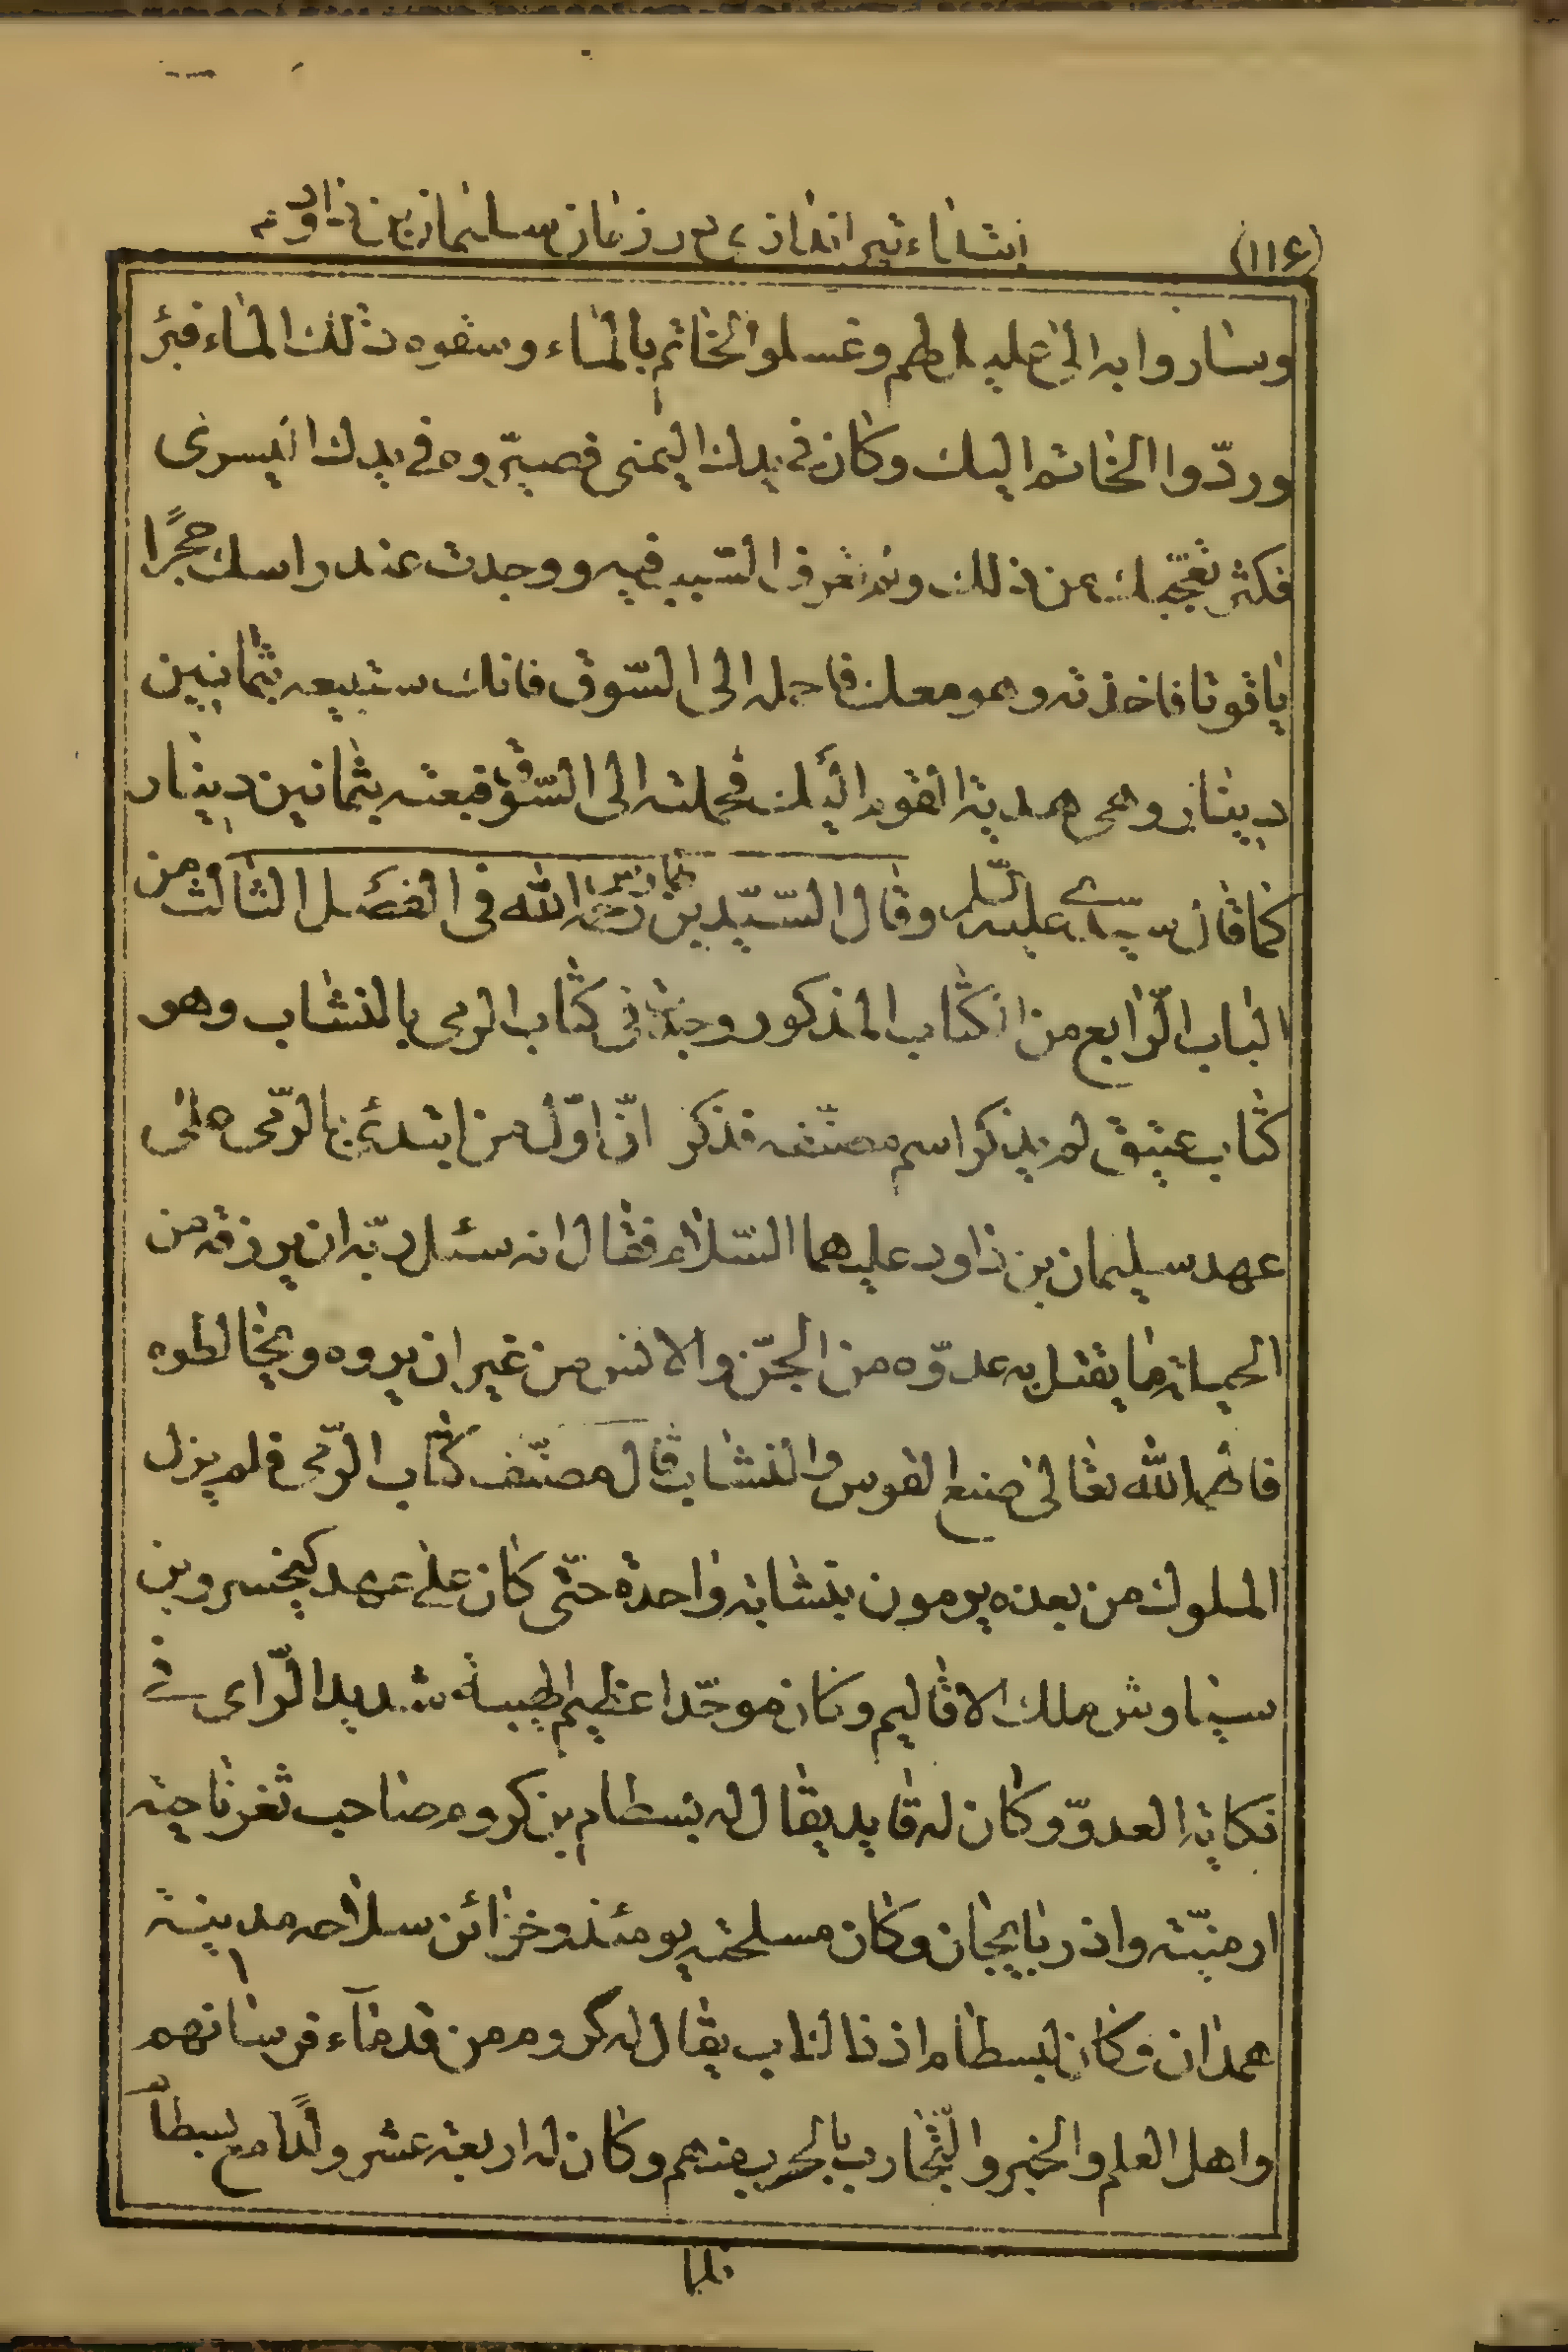 (۱۱۶) ابتداء تیر اندازی در زمان سلیمان بن داود
وساروا به الی علیلهم وغسلوا الخاتم بالماء وسقوه ذلك الماء فبرئ
وردّوا الخاتم الیك وكان فی یدك الیمنی فصیّروه فی یدك الیسری
فكثر تعجّبك من ذلك ولم تعرف السّبب فیه ووجدت عند راسك حجرًا
یاقوتا فاخذته وهو معك فاحمله الی السّوق فانك ستبیعه بثمانین
دینار وهی هدیة القوم الیك فحملته الی السّوق فبعته بثمانین دینار
كما قال سیدی علیه السّلم وقال السّیّد بن طاوس رحمه الله فی الفصل الثالث من
الباب الرّابع من الكتاب المذكور وجدت فی كتاب الرمی بالنشاب وهو
كتاب عتیق لم یذكر اسم مصنّفه فذكر انّ اوّل من ابتدئ بالرّمی علی
عهد سلیمان بن داود علیهما السّلام فقال انه سئل ربّه ان یرزقه من
الحیلة ما یقتل به عدوّه من الجنّ والانس من غیر ان یروه ویخالطوه
فالهمه الله تعالی صنع القوس والنشاب قال مصنّف كتاب الرّمی فلم یزل
الملوك من بعده یرمون بنشابة واحدة حتّی كان علی عهد كیخسرو بن
سیاوش ملك الاقالیم وكان موحّدا عظیم الهیبة شدید الرّای فی
نكایة العدوّ وكان له قاید یقال له بسطام بن كروم صاحب ثغر ناحیة
ارمنیّة واذربایجان وكان مسلحته یومئذ وخزائن سلاحه مدینة
همدان وكان لبسطام اذ ذاك اب یقال له كروم من قدماء فرسانهم
واهل العلم والخبر والتّجارب بالحرب منهم وكان له اربعة عشر ولدًا مع بسطام